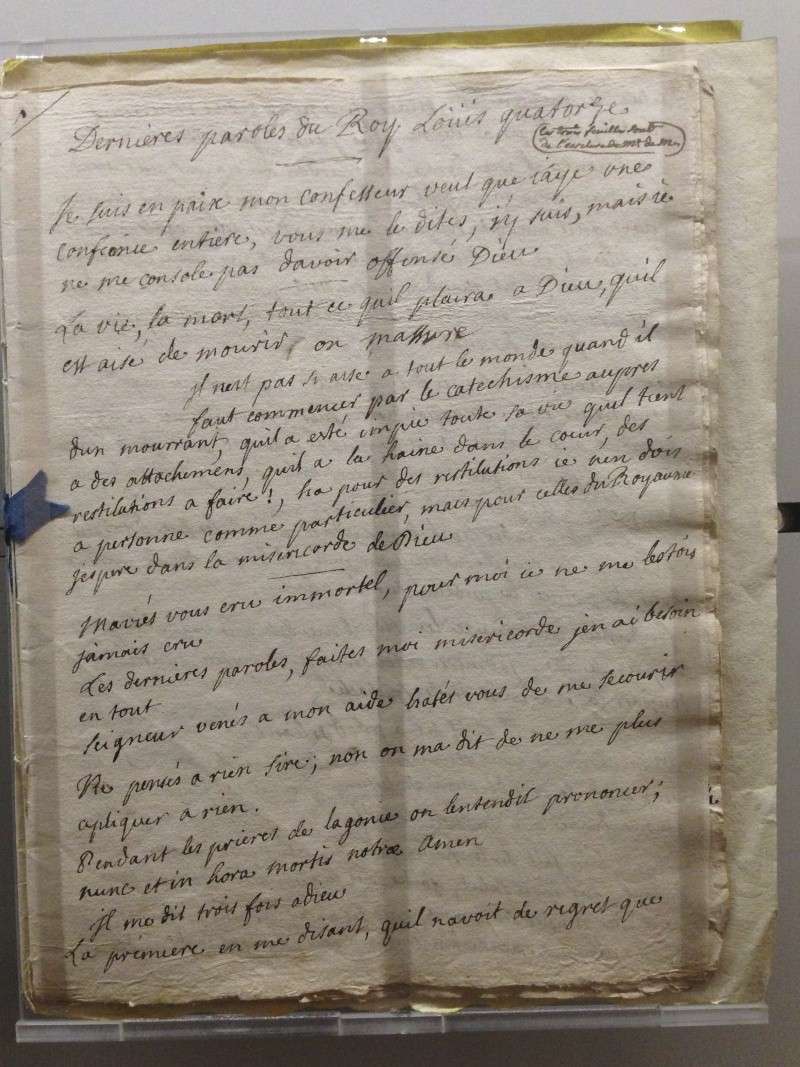 Dernières paroles du Roy Loüis quatorze
ces trois feuilles sont
de l'ecriture de Me de
Je suis en paix mon confesseur veut que iaye une
confience entiere, vous me le dites, j'y suis, mais ie
ne me console pas davoir offensé Dieu
La vie, la mort, tout ce quil plaira a Dieu, quil
est aisé de mourir, on massure
Jl nest pas si aise a tout le monde quand il
faut commencer par le catechisme aupres
dun mourrant, quil a esté impie toute sa vie quil tient
a des attachemens, quil a la haine dans le coeur, des
restitutions a faire!, ha pour des restitutions ie nen dois
a personne comme particulier, mais pour celles du Royaume
jespere dans la misericorde de Dieu
Maviés vous cru immortel, pour moi ie ne me
jamais cru
Les dernieres paroles, faites moi misericorde jen ai besoin
en tout
Seigneur venés a mon aide hatés vous de me secourir
Ne pensés a rien Sire; non on ma dit de ne me plus
apliquer a rien.
Pendant les prieres de lagonie on lentendit prononcer;
nunc et in hora mortis notræ Amen
Jl me dit trois fois adieu
La premiere en me disant, quil navoit de regret que